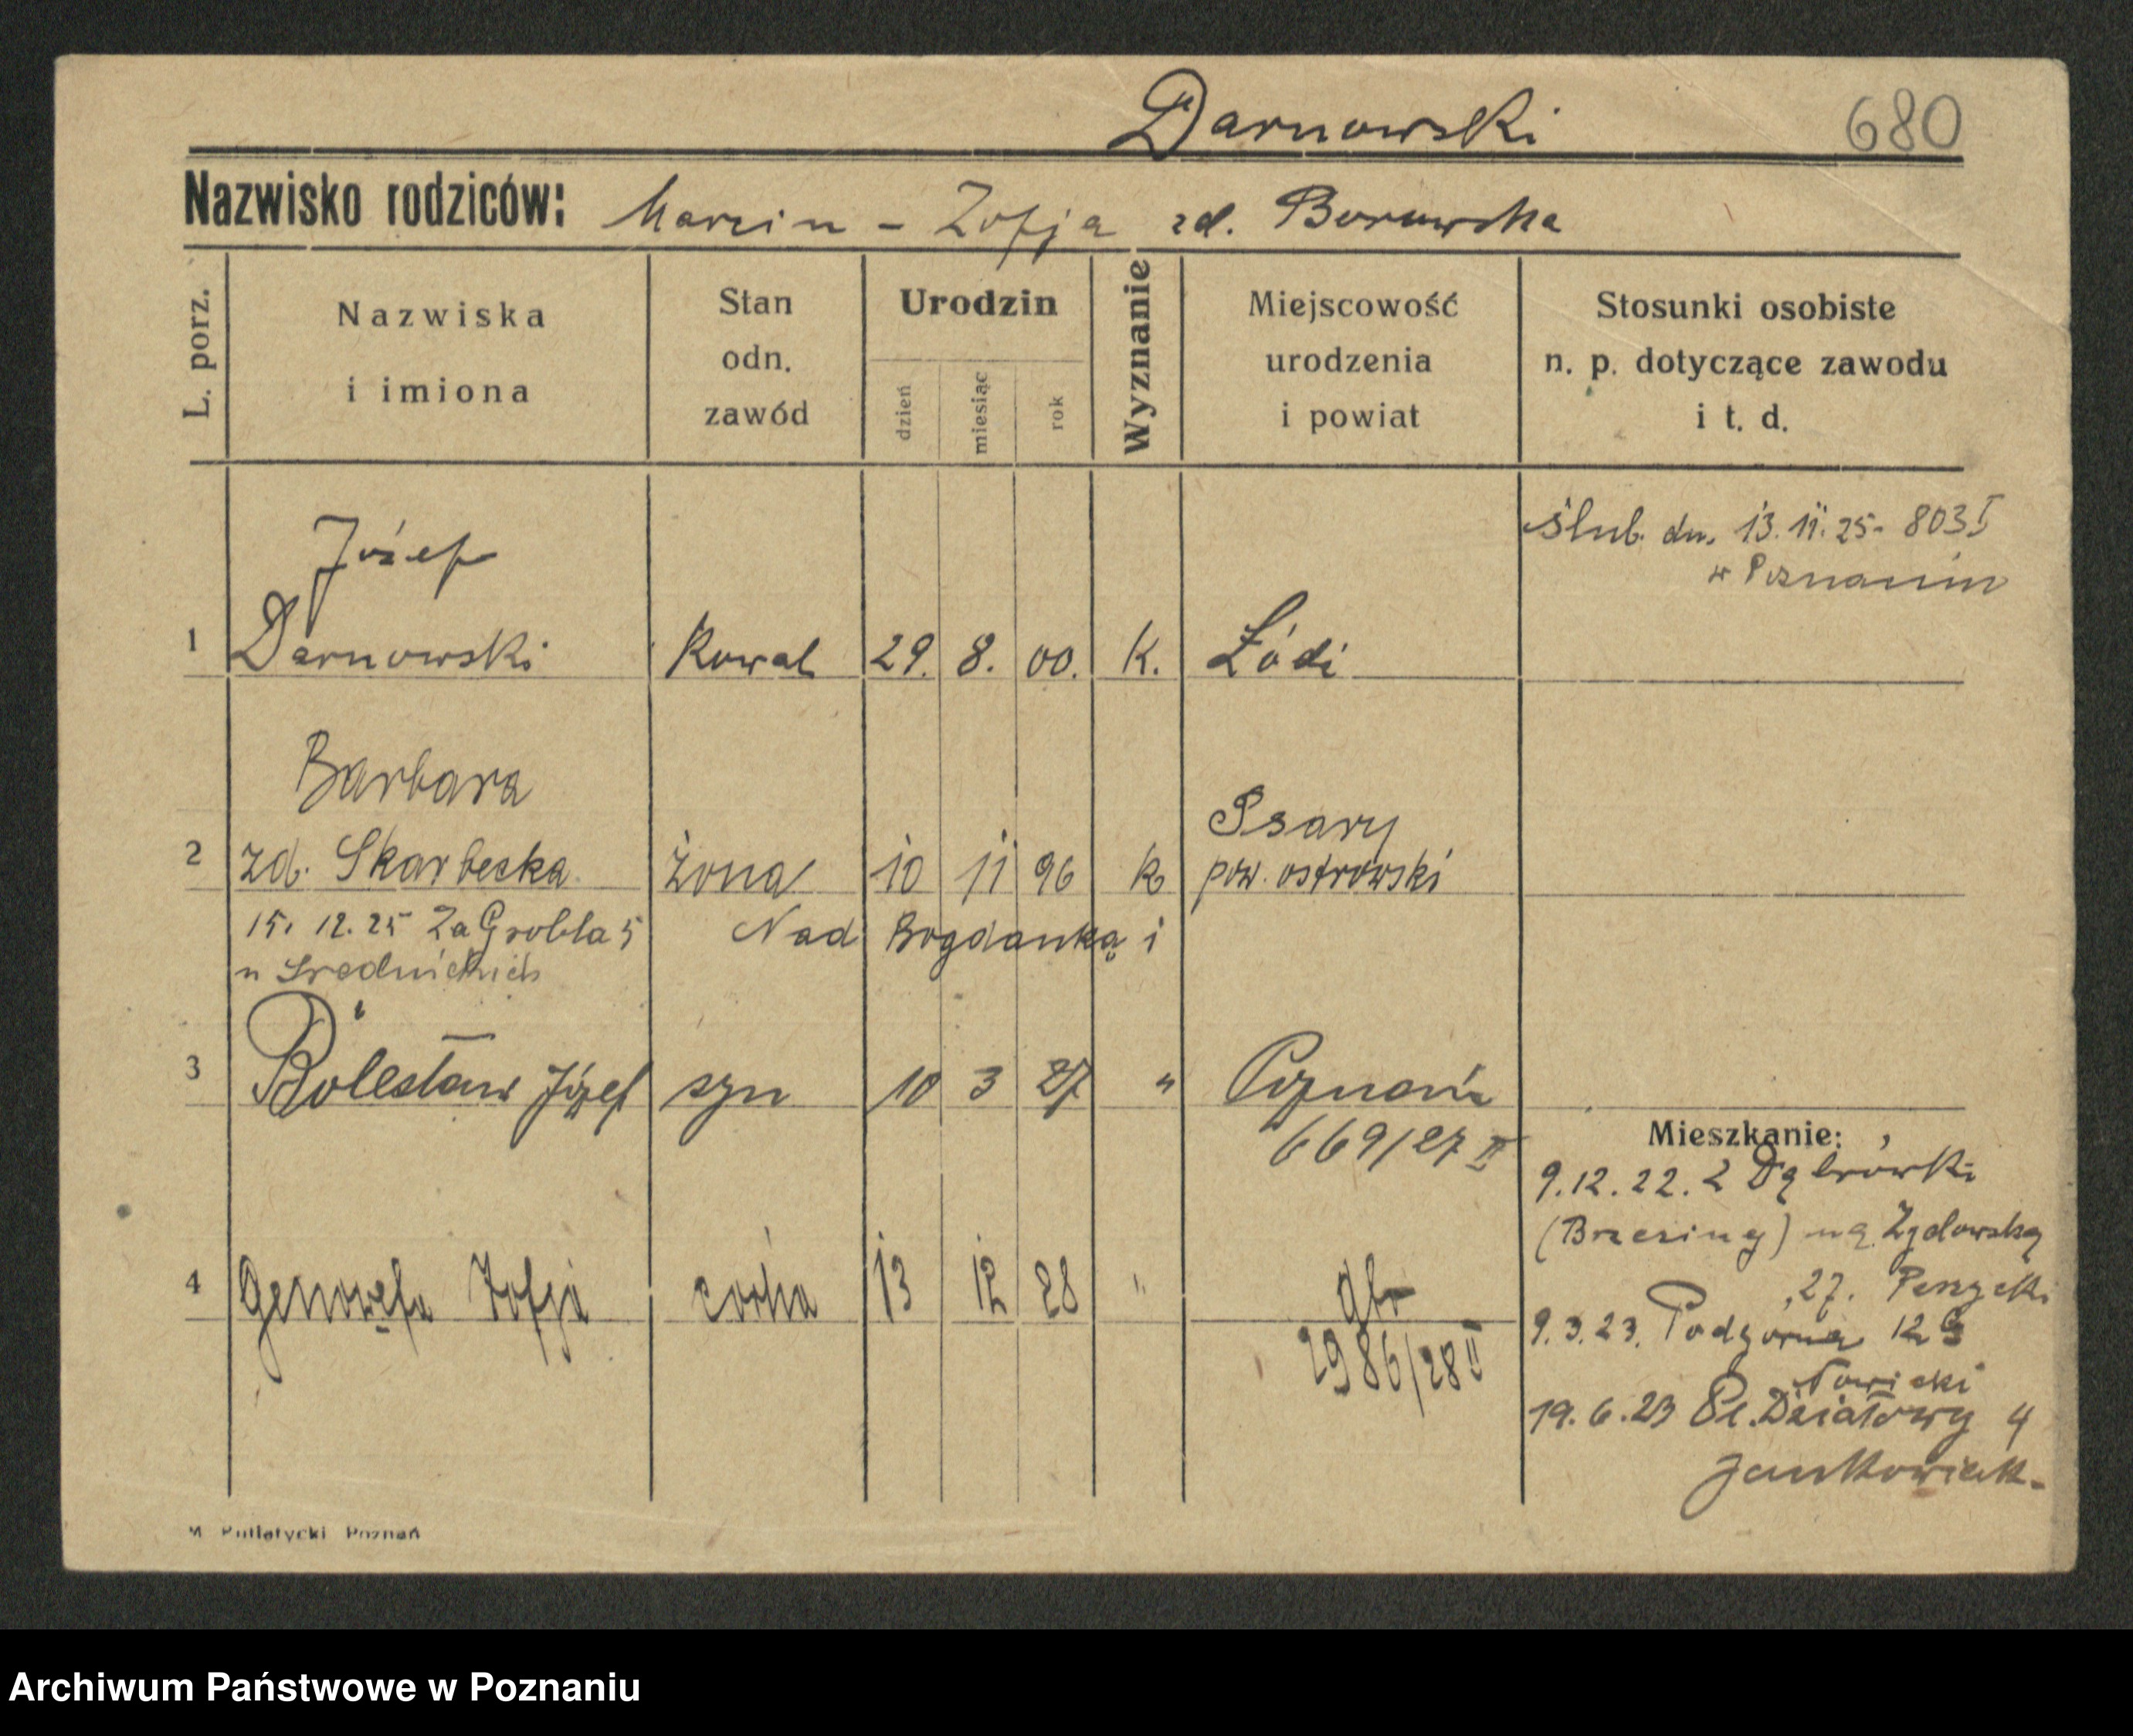 Darnowski 680
Nazwisko rodziców: Marcin - Zofja zd. Borowska
L. porz.
Nazwiska
i imiona
Stan
odn.
zawód
Urodzin
dzień
miesiąc
rok
Wyznanie
Miejscowość
urodzenia
i powiat
Stosunki osobiste
n. p. dotyczące zawodu
i t. d.
ślub. dn. 13.11.25- 803 I
w Poznaniu
Józef
1 Darnowski Kowal 29. 8. 00. K. Łódź
Barbara
Psary
2 zd. Skarbecka żona 10 11 96 k pow. ostrowski
15. 12. 25 Za Groblą 5 Nad Bogdanką 1
u Średnickich
3 Bolesław Józef syn 10 3 27 " Poznań
669/27 II
4 Genowefa Zofja córka 13 12 28 "
2986/28 II
Mieszkanie:
9.12.22. z Dąbrówki
(Brzeziny) na Żydowską
27.
9.3.23. Podgórna 12
Nowicki
19.6.23 Pl. Działowy 4
Jankowiak-
M. Putiatycki Poznań
Archiwum Państwowe w Poznaniu